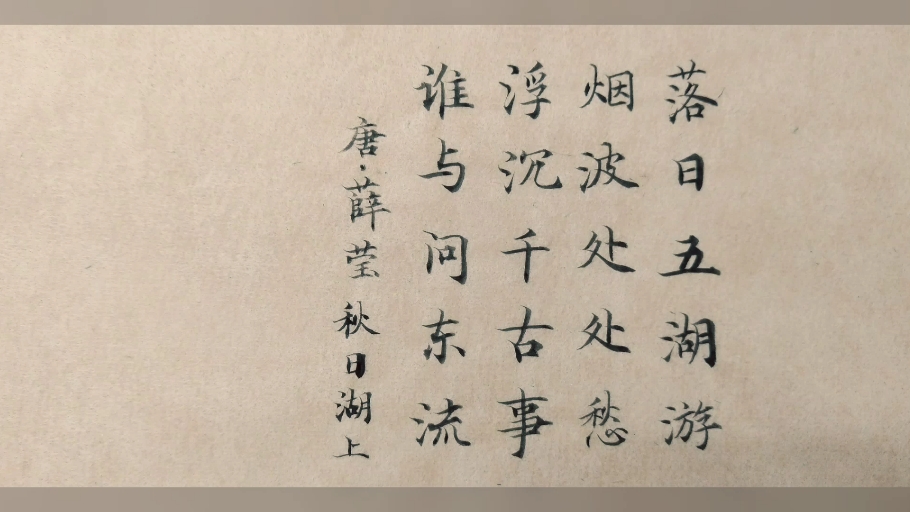 落日五湖游
烟波处处愁
浮沉千古事
谁与问东流
唐·薛莹 秋日湖上